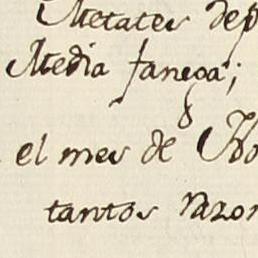 Metates dep
Media fanega;
el mes de No
tantos razon